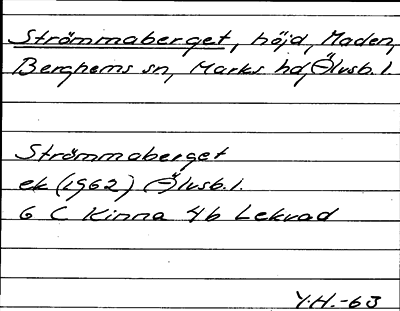 Strömmaberget, höjd, Maden,
Berghems sn, Marks hd, Älvsb. l.
Strömmaberget
ek (1962) Älvsb. l.
6 C Kinna 4b Lekvad
Y.H.-63